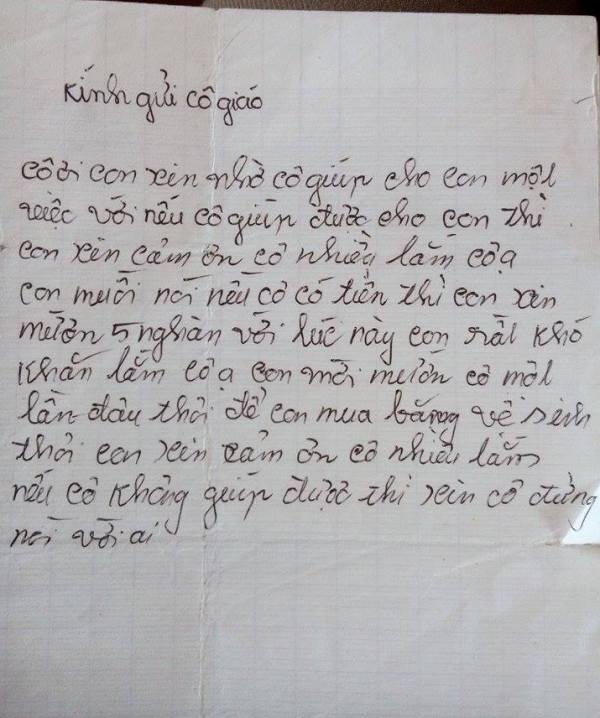 Kính gửi cô giáo
cô ơi con xin nhờ cô giúp cho con một
việc với nếu cô giúp được cho con thì
con xin cảm ơn cô nhiều lắm cô ạ
con muôi nói nếu cô có tiền thì con xin
mượn 5 nghàn với lúc này con rất khó
khăn lắm cô ạ con mới mượn cô một
lần đầu thôi để con mua băng vệ sinh
thôi con xin cảm ơn cô nhiều lắm
nếu cô không giúp được thì xin cô đừng
nói với ai